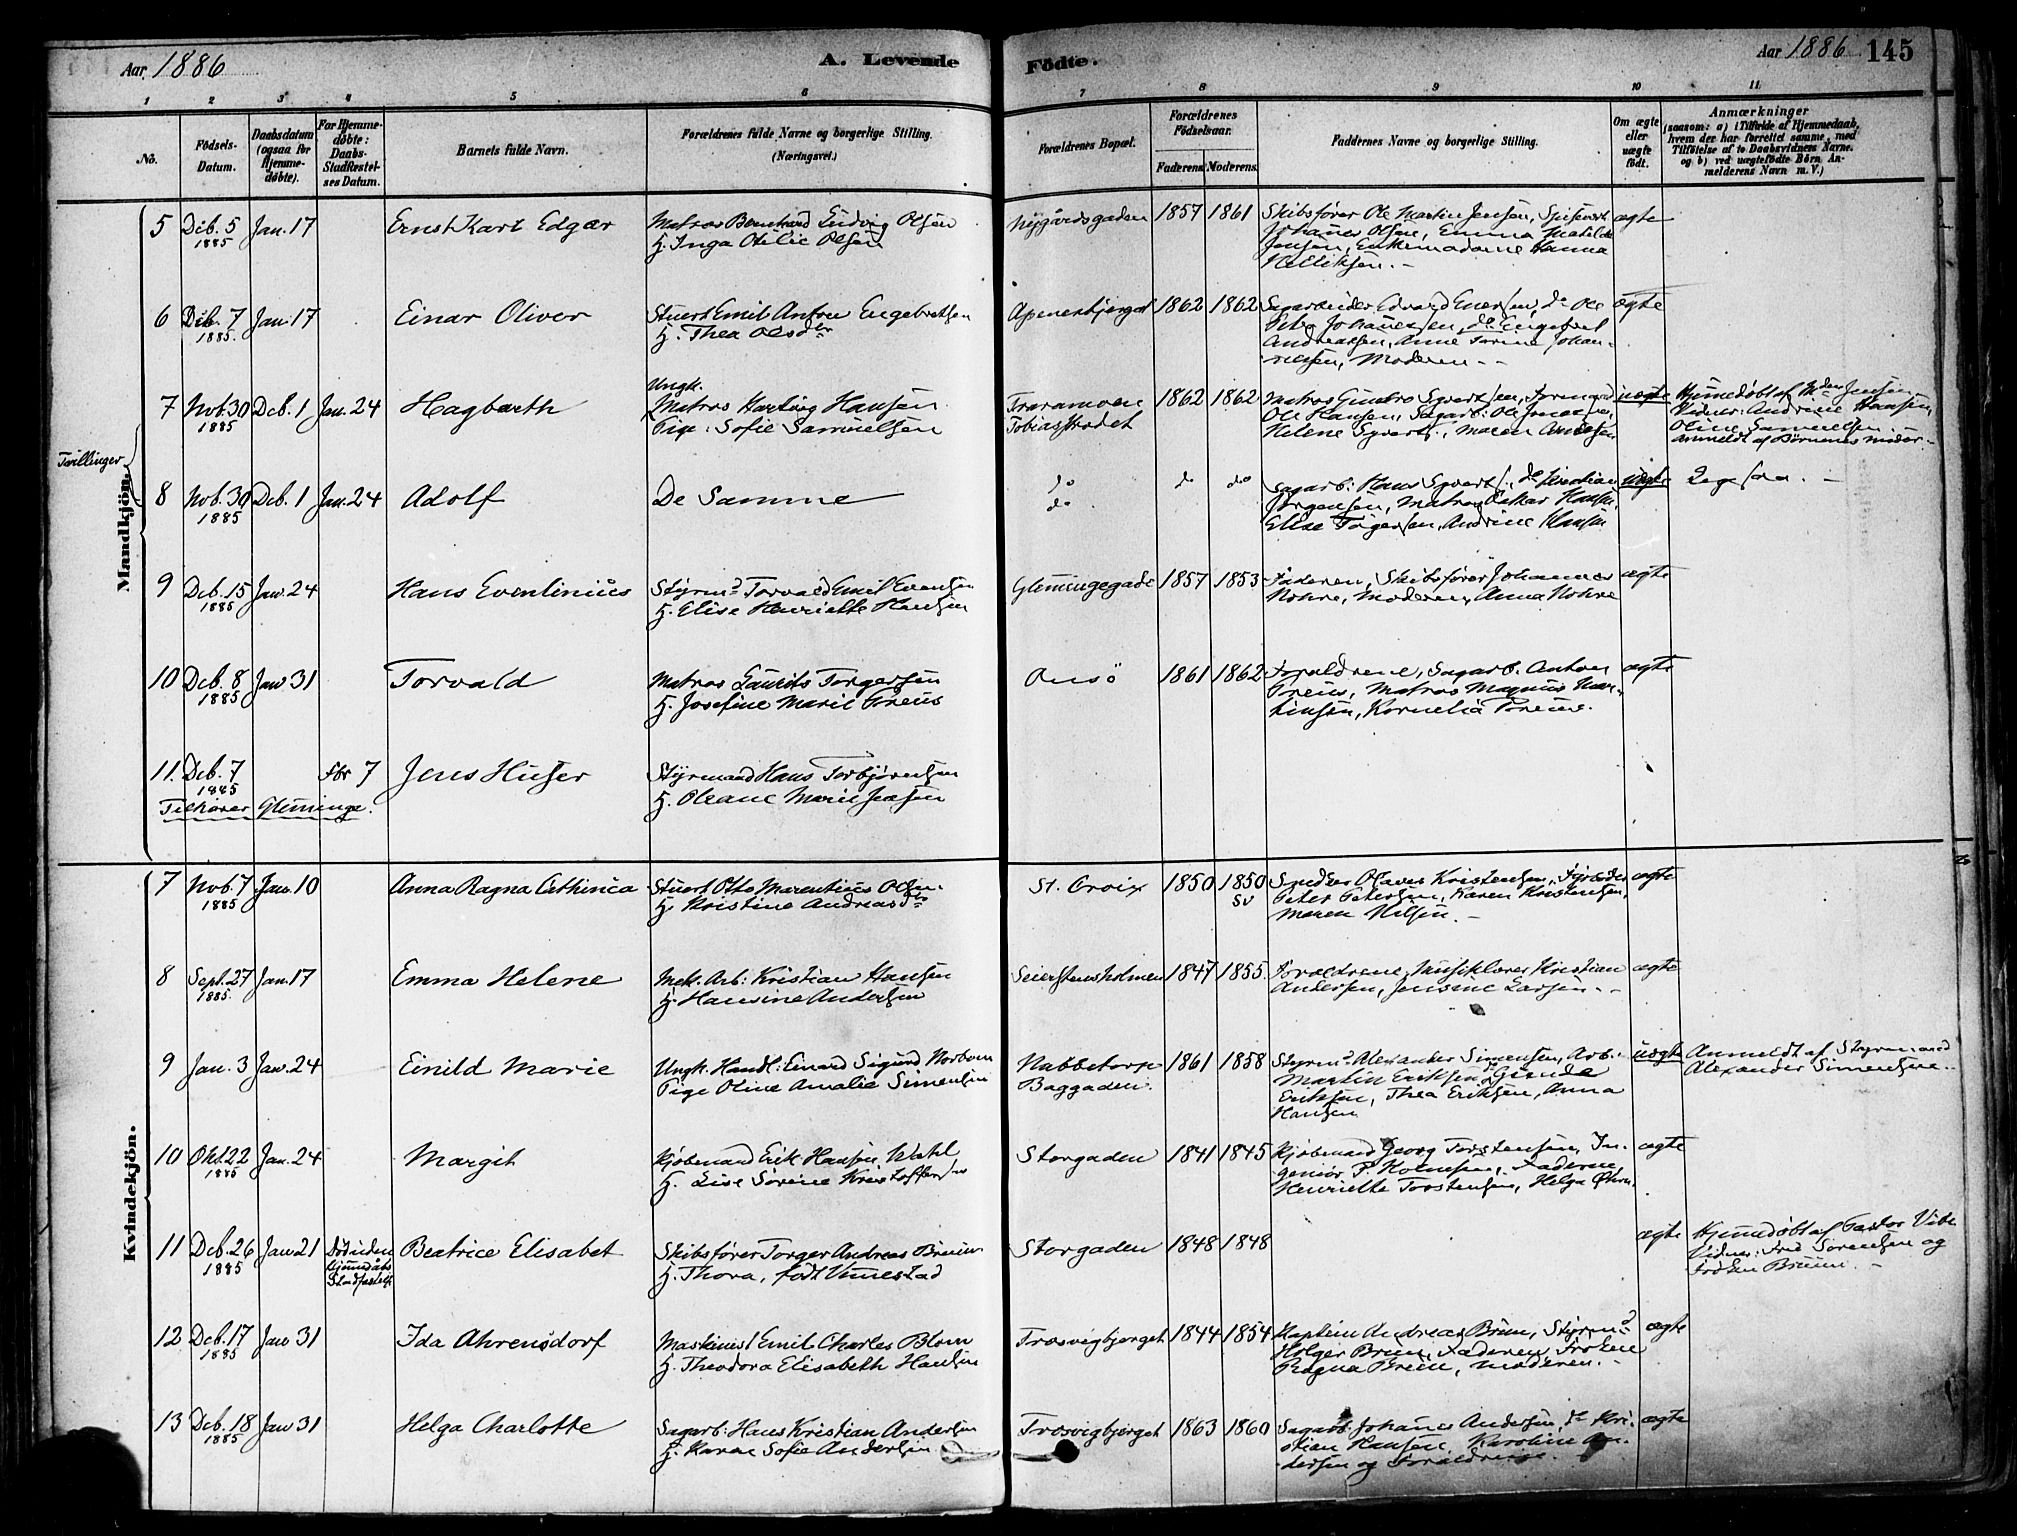 Aar 1886
A. Levende
Fødte.
Aar 1886 145
1 2 3 4 5 6 7 8 9 10 11
No.
Fødsels-
Datum.
Daabsdatum
(ogsaa for
Hjemme-
døbte).
For Hjemme-
døbte:
Daabs-
Stadfæstel-
ses Datum.
Barnets fulde Navn.
Forældrenes fulde Navne og borgerlige Stilling.
(Næringsvei.)
Forældrenes Bopæl.
Forældrenes
Fødselsaar.
Faderens. Moderens.
Faddernes Navne og borgerlige Stilling.
Om ægte
eller
uægte
født.
Anmærkninger
(saasom: a) i Tilfælde af Hjemmedaab,
hvem der har forrettet samme, med
Tilføielse af to Daabsvidners Navne.
og b) ved uægtefødte Børn An-
melderens Navn m. V.)
Mandkjön.
5 Deb. 5 1885 Jan. 17 Ernst Karl Edgar
Matros Bernhard Ludvig Olsen
H. Inga Otilie Olsen
Nygårdsgaden 1857 1861
Skibsfører Ole Martin Jensen,
Johannes Olsen, Emma Matilde
Jensen, Enkemadame Hanna
ægte
6 Deb. 7 1885. Jan. 17 Einar Oliver
Stuert Emil Anton Engebretsen
H. Thea Olsdtr
Apenesbjerget 1862 1862
Sagarbeider Edvard Enersen, do Ole
Petro Johannesen, do Engebret
Andreassen, Anne Johan-
nessen, Moderen
ægte
Tvillinger
7 Nob. 30 1885 Deb. 1 Jan. 24 Hagbarth
Ungk.
Matros Hartvig Hansen
Pige: Sofie Samuelsen
Traramoen
Tobiasstrædet
1862 1862
Matros Syvertsen,
Ole Hansen, Sagarb. Ole
Helene Syverts., Maren
uægte
Hjemmedøbt af Jensen
Vidner: Andrine Hansen,
Oline Samuelsen.
Anmeldt af Børnenes moder
8 Nob. 30 1885 Deb. 1 Jan. 24 Adolf
De Samme
do
do
do do
Sagarb: Hans Syverts., do Kristian
Jørgensen, Matros Oskar Hansen
Elise Torgersen, Andrine Hansen
uægte
Ligesaa.
9 Deb. 15 1885 Jan. 24 Hans Eventinius
Styrmd Torvald Emil Evensen
H. Elise Henriette Hansen
Glemmingegade 1857 1853
Faderen, Skibsfører Johannes
Nohre, Moderen, Anna Nohre
ægte
10 Deb. 8 1885 Jan 31 Torvald
Matros Laurits Torgersen
H. Josefine Marie Preus
Onsø 1861 1862
Forældrene, Sagarb. Anton
Preus, Matros Magnus Mar-
tinsen, Kornelia Preus.
ægte
11. Deb. 7 1885 Fbr 7 Jens Huser
Styrmand Hans Torbjørnsen
H. Oleane Marie Jensen
Tilhører Glemminge.
Kvindekjön.
7 Nob. 7 1885 Jan. 10 Anna Ragna Cathinca
Stuert Otto Marentius Olsen
H. Kristine Andreasdtr
St. Croix 1850 1850
Sv
Snedker Olaves Kristensen,
Peter Petersen, Karen Kristensen,
Maren Nilsen.
ægte
8 Sept. 27 1885. Jan. 17 Emma Helene
Mek. Arb: Kristian Hansen
H. Hansine Andersen
Seierstensholmen 1847 1855.
Forældrene, Musiklærer Kristian
Andersen, Jensine Larsen
ægte
9 Jan. 3 Jan. 24 Einild Marie
Ungk. Handl: Einard Sigurd Norbom
Pige Oline Amalie Simensen
Nabbetorp
Baggaden.
1861 1858
Styrmd Alexander Simensen, Arb.
Martin Eriksen,
Eriksen, Thea Eriksen, Anna
Hansen
uægte
Anmeldt af Styrmand
Alexander Simensen.
10 Okt. 22 1885 Jan. 24 Margit
Kjøbmand Erik Hansen
H. Lise Sørine Kristoffersen
Storgaden 1841 1845
Kjøbmand Georg Torstensen, In-
geniør P. Faderen,
Henriette Torstensen, Helga
ægte
11 Deb. 26 1885 Jan 21
Død uden
Hjemmedaabs
Stadfæstelse
Beatrice Elisabet
Skibsfører Torger Andreas Bruun
H. Thora, født
Storgaden 1848 1848
ægte
Hjemmedøbt af Pastor Vibe
Vidner: Frk Sørensen og
Frøken Bruun.
12 Deb. 17 1885 Jan 31 Ida Ahrensdorf
Maskinist Emil Charles Blom
H. Theodora Elisabeth Hansen
Trosvigbjerget 1844 1854
Kaptein Andreas Brun, Styrmd
Holger Brun, Faderen, Frøken
Ragna Brun, Moderen.
ægte
13 Deb. 18 1885 Jan 31 Helga Charlotte
Sagarb: Hans Kristian Andersen
H. Karen Sofie Andersen
Trosvigbjerget 1863 1860
Sagarb. Johannes Andersen, do Kri-
stian Hansen, Karoline An-
dersen og Forældrene.
ægte